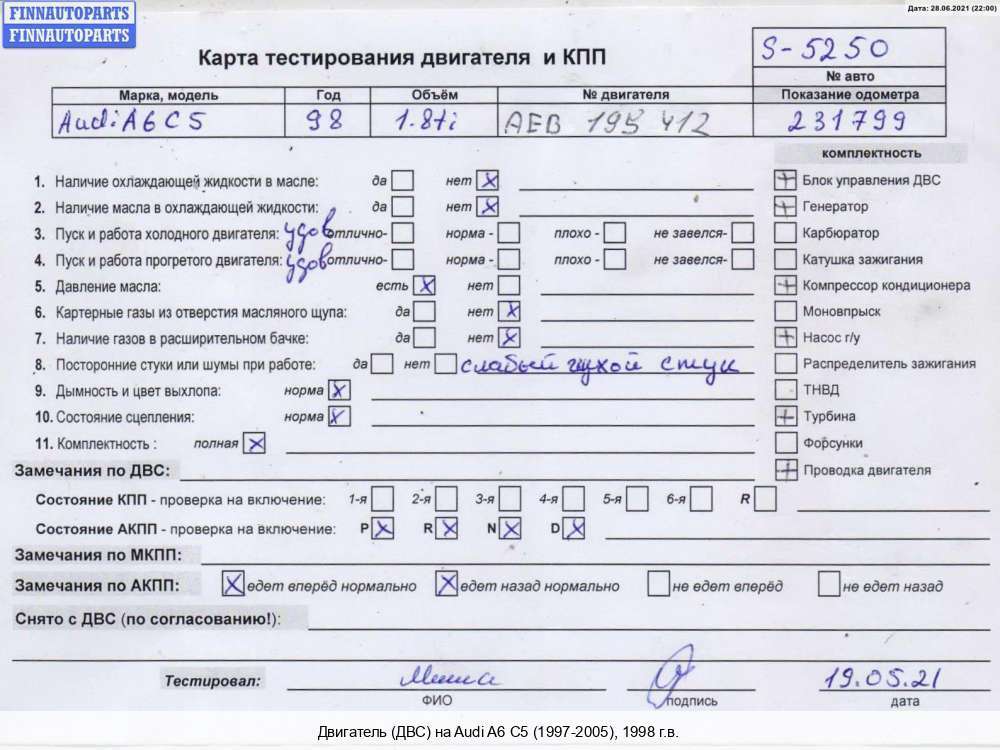 FINNAUTOPARTS
FINNAUTOPARTS
Дата: 28.06.2021 (22:00)
Карта тестирования двигателя и КПП
S-5250
№ авто
Марка, модель Год Объём № двигателя Показание одометра
Audi A6 C5 98 1.8ti AEB 195 412 231799
комплектность
1. Наличие охлаждающей жидкости в масле: да нет Блок управления ДВС
2. Наличие масла в охлаждающей жидкости: да нет Генератор
3. Пуск и работа холодного двигателя: удов отлично- норма - плохо - не завелся- Карбюратор
4. Пуск и работа прогретого двигателя: удов отлично- норма - плохо - не завелся- Катушка зажигания
5. Давление масла: есть нет Компрессор кондиционера
6. Картерные газы из отверстия масляного щупа: да нет Моновпрыск
7. Наличие газов в расширительном бачке: да нет Насос г/у
8. Посторонние стуки или шумы при работе: да нет слабый глухой стук Распределитель зажигания
9. Дымность и цвет выхлопа: норма ТНВД
10. Состояние сцепления: норма Турбина
11. Комплектность : полная Форсунки
Замечания по ДВС: Проводка двигателя
Состояние КПП - проверка на включение: 1-я 2-я 3-я 4-я 5-я 6-я R
Состояние АКПП - проверка на включение: P R N D
Замечания по МКПП:
Замечания по АКПП: едет вперёд нормально едет назад нормально не едет вперёд не едет назад
Снято с ДВС (по согласованию!):
Тестировал: Миша 19.05.21
ФИО подпись дата
Двигатель (ДВС) на Audi A6 C5 (1997-2005), 1998 г.в.